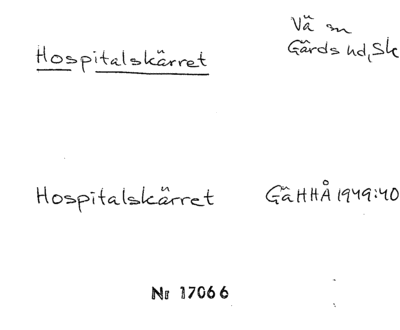 Hospitalskärret
Vä sn
Gärds hd, Sk
Hospitalskärret GäHHÅ 1949:40
Nr 17066